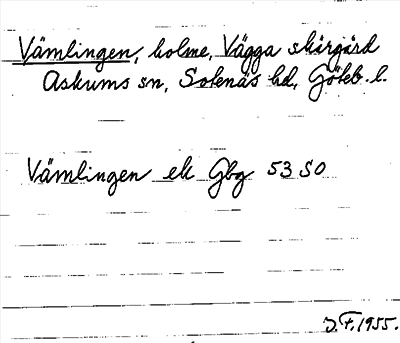 Vämlingen, holme, Vägga skärgård
Askums sn, Sotenäs hd, Göteb. l.
Vämlingen ek Gbg 53 SO
J.F. 1955.